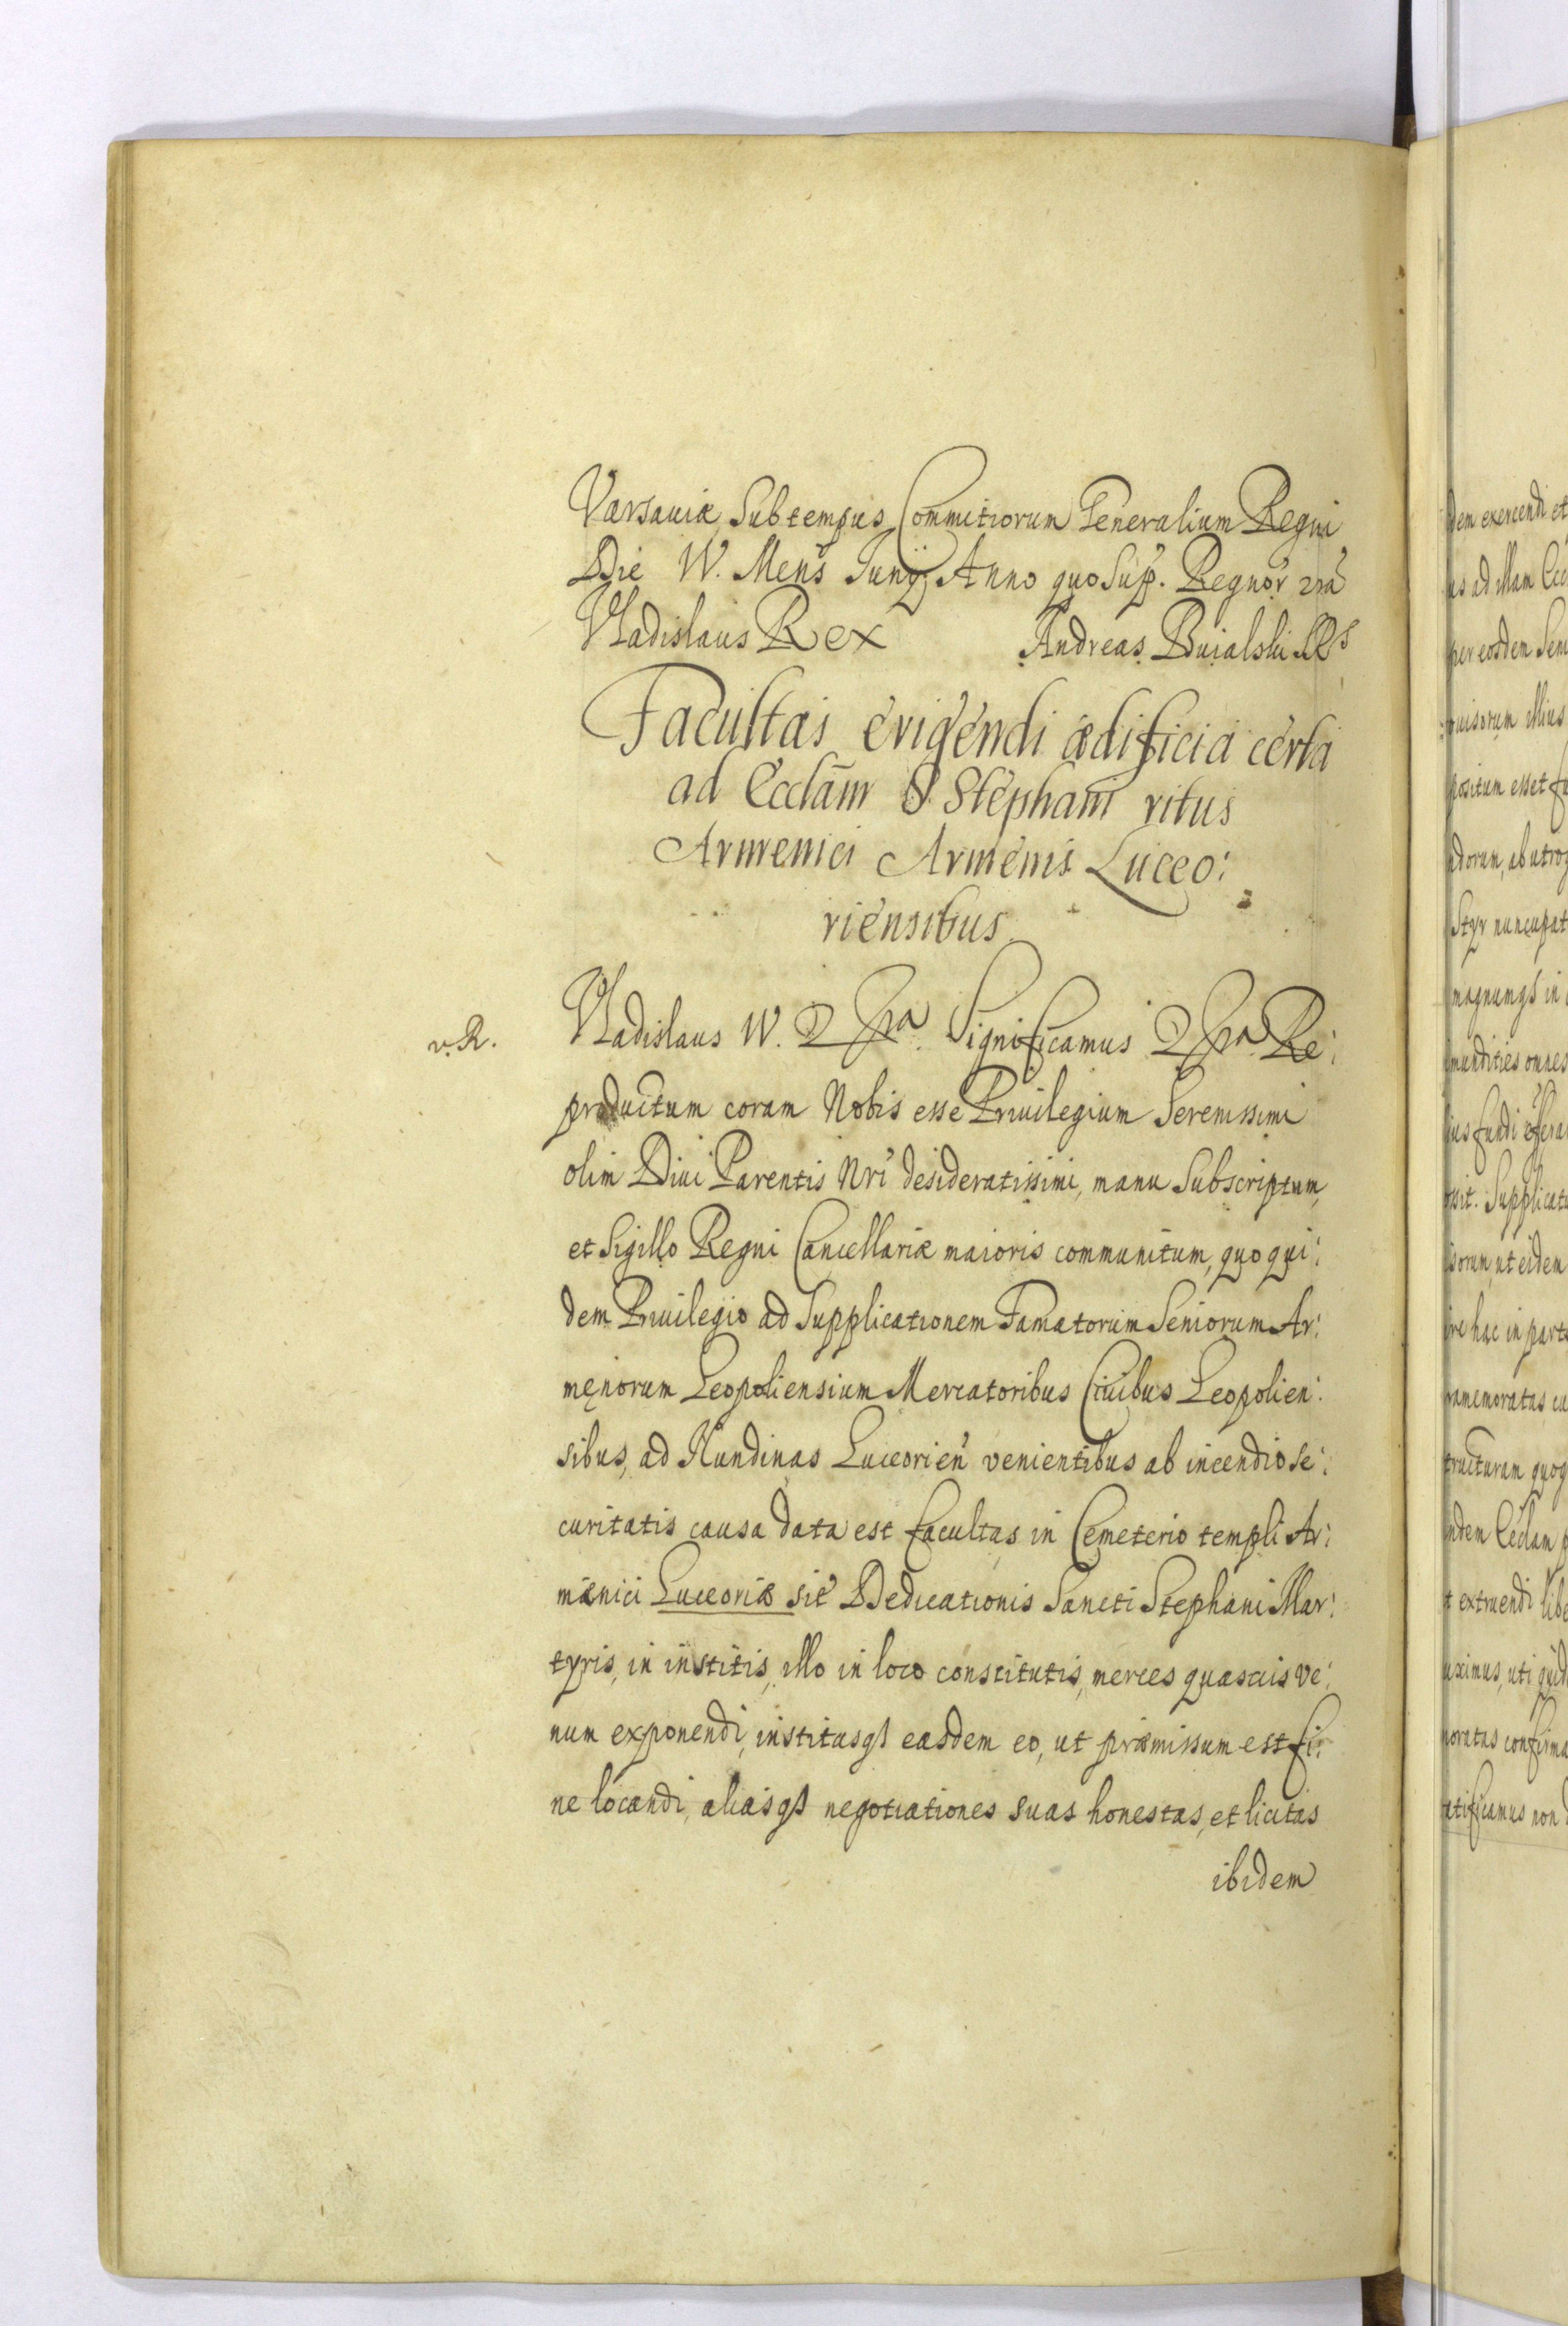 Varsauiæ Sub tempus Commitiorum Generalium Regni
Die IV. Mens Iunij Anno quo Sup. Regnor nrã
Vladislaus Rex Andreas Buialski SRS
Facultas erigendi ædificia certa
ad Ecclãm S. Stephani ritus
Armenici Armenis Luceo:
riensibus
v. R.
Vladislaus IV. Significamus Re:
productum coram Nobis esse Priuilegium Serenissimi
olim Diui Parentis Nri desideratissimi, manu Subscriptum,
et Sigillo Regni Cancellariæ maioris communitum, quo qui:
dem Priuilegio ad Supplicationem Famatorum Seniorum Ar:
męnorum Leopoliensium Mercatoribus Ciuibus Leopolien:
sibus, ad Nundinas Luceorien venientibus ab incendio se:
curitatis causa data est facultas in Cemeterio templi Ar:
mænici Luceoriæ sit Dedicationis Sancti Stephani Mar:
tyris, in institis, illo in loco constitutis, merces quasuis ve:
num exponendi, institasqs easdem eo, ut præmissum est fi:
ne locandi, aliasqs negotiationes suas honestas, et licitas
ibidem
dem exercendi et
us ad illam
per eosdem
illius
positum esset
Styr nuncupat
magnumqs in
mundities
ius fundi
Supplicatu
ut eidem
hac in parte
tructuram quoq
extruendi
uti
confirma
non